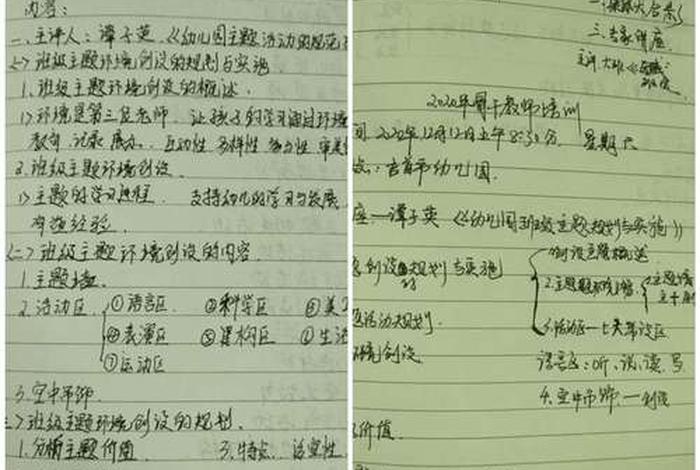 内容：
一、主讲人：谭子英.《幼儿园主题活动的规范
<一>班级主题环境创设的规划与实施.
1.班级主题环境创设的概述.
1>环境是第三位老师. 让孩子的学习通过环境
教育 记录 展示. 互动性 多样性
2.班级主题环境创设.
1>主题的学习进程. 支持幼儿的学习与发展
有益经验.
<二>班级主题环境创设的内容.
1.主题墙.
2.活动区. ①语言区 ②科学区 ③美工
④表演区 ⑤建构区 ⑥生活
⑦运动区
3.空中吊饰.
三>班级主题环境创设的规划.
1.分析主题价值 3.特点. 适宜性
三.专家讲座.
主讲.
2020年骨干教师培训
间 2020年12月12日上午8:30分. 星期六
点：吉首市幼儿园.
座—谭子英《幼儿园班级主题规划与实施》
创设规划与实施
1.创设主题概述
2.主题
3.活动区—七大区
活动规划.
环境创设.
语言区：听、说、读、写
4.空中吊饰.—创设
价值.